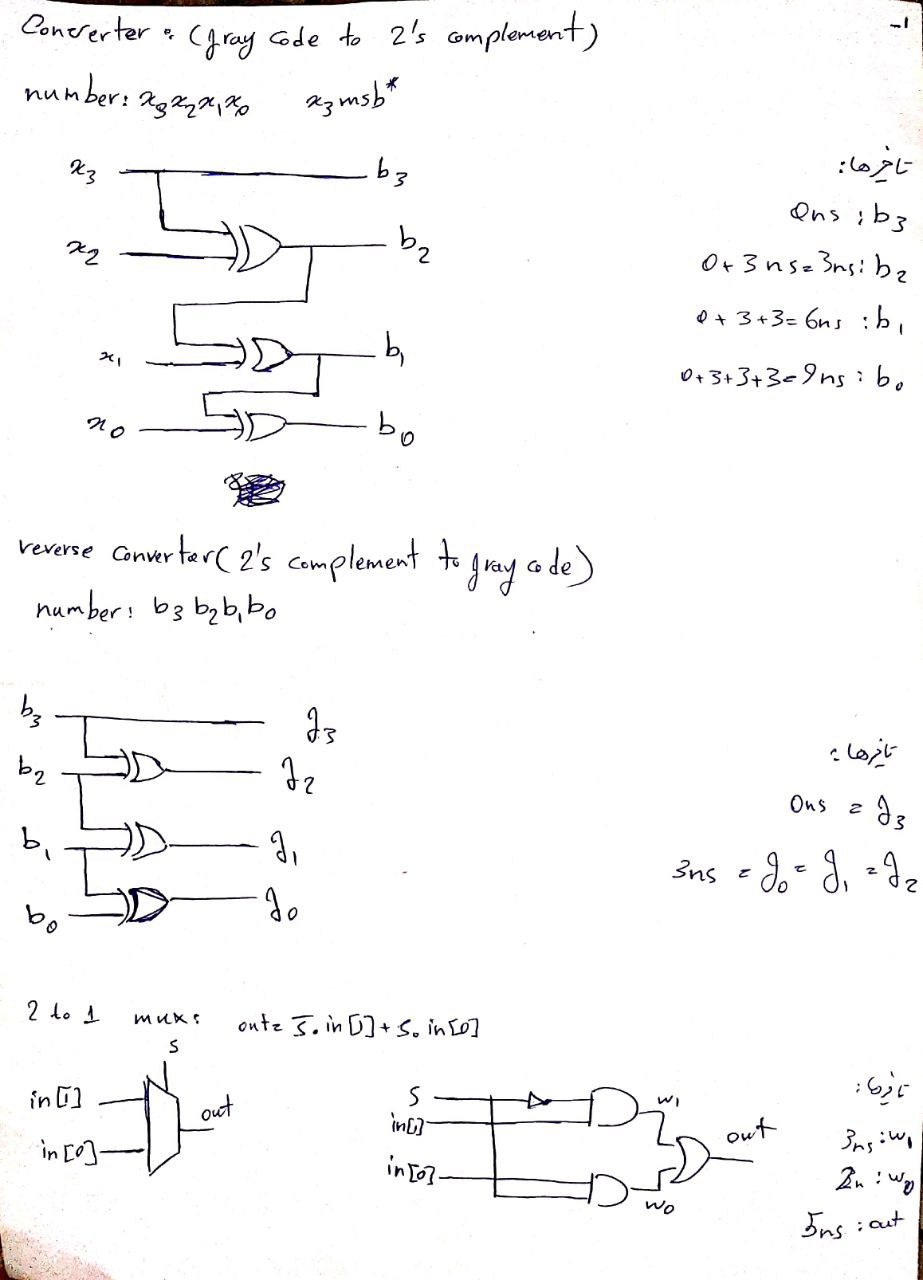 -1
Converter: (gray code to 2's complement)
number: x₃x₂x₁x₀ x₃ msb*
x₃ b₃
x₂ b₂
x₁ b₁
x₀ b₀
تاخیرها:
0ns : b₃
0+3ns=3ns: b₂
0+3+3=6ns : b₁
0+3+3+3=9ns : b₀
reverse converter (2's complement to gray code)
number: b₃b₂b₁b₀
b₃ g₃
b₂ g₂
b₁ g₁
b₀ g₀
تاخیرها:
0ns = g₃
3ns = g₀ = g₁ = g₂
2 to 1 mux: out= s̅.in[1]+s.in[0]
s
in[1]
out
in[0]
S
in[1]
in[0]
w₁
out
w₀
3ns : w₁
2n : w₀
5ns : out